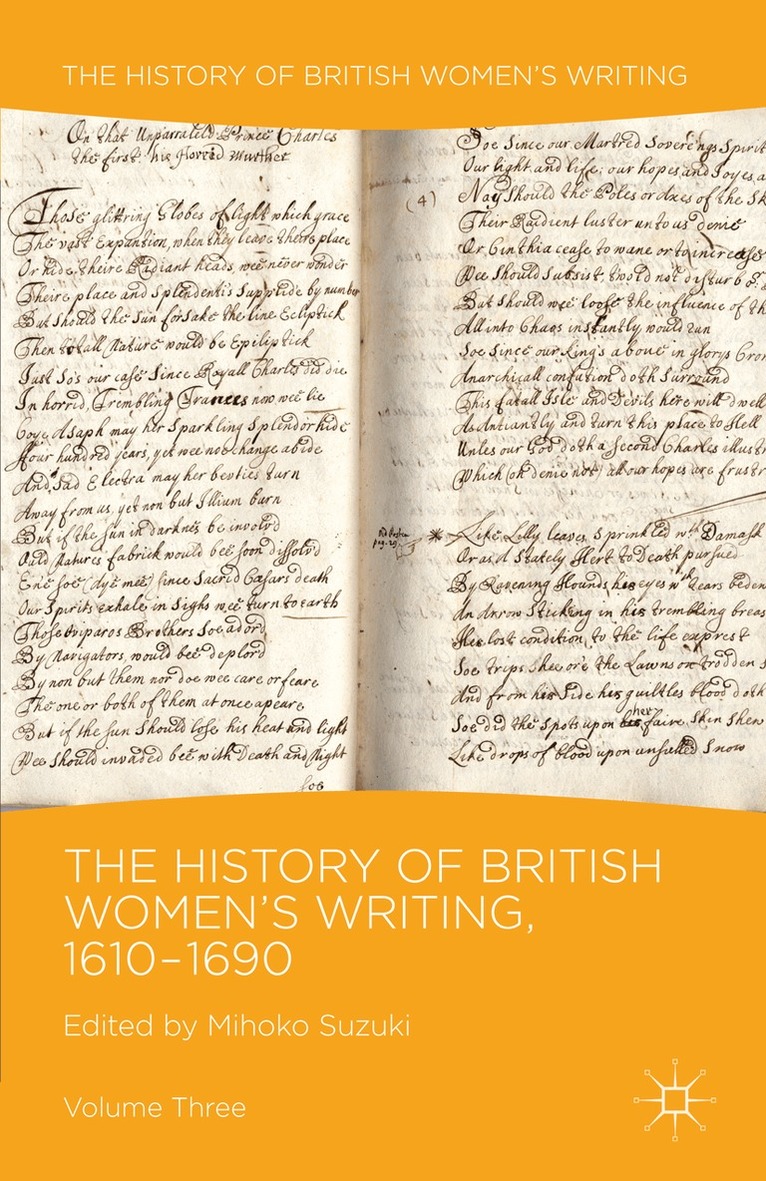 THE HISTORY OF BRITISH WOMEN'S WRITING
On that Unparraleld Prince Charles
the first his Horrid Murther
Those glittring Globes of light which grace
The vast Expantion, when they leave theire place
Or hide theire Radiant heads, wee never wonder
Theire place and Splendentis Supplide by number
But should the Sun forsake the line Ecliptick
Then totall Nature would be Epiliptick
Just so's our case Since Royall Charles did die
In horrid, Trembling Trances now wee lie
may her Sparkling Splendor hide
ffour hundred years, yet wee noe change abide
And Sad Electra may her bevties turn
Away from us, yet non but Illium burn
But if the sun in darknes be involvd
Ould Natures fabrick would bee soon dissolvd
Ene soe (dye mee) since Sacred Cæsars death
Our Spirits exhale in Sighs wee turn to earth
Those Brothers Soe adord
By Navigators, would bee deplord
By non but them nor doe wee care or feare
The one or both of them at once apeare
But if the sun Should lose his heat and light
Wee should invaded bee with Death and Night
soe
(4)
Soe Since our Martred Soverengs Spirit
Our light and life, our hopes and Joyes a
Nay Should the Poles or Axes of the Sk
Their Raidient luster unto us denie
Or Cinthia cease to wane or to increase
Wee Should Subsist, t'would not disturb
But should wee loose the influence of th
All into Chaos instantly would run
Soe Since our King's a bove in glorys Cro
Anarchicall confution doth Surround
This fatall Isle and Devils here will dwell
As Antiantly and turn this place to Hell
Unles our God doth a Second Charles illustr
Which (oh denie not) all our hopes are frustr
pag. 29
* Like Lilly leaves Sprinkled wth Damask
Or as A Stately Hert to Death pursued
By Ravening Hounds, his eyes wth tears bedew
An Arrow Sticking in his trembling breas
His lost condition, to the life exprest
Soe trips shee ore the Lawns on trodden
And from his Side his guiltles blood doth
Soe did the Spots upon her faire Skin Shew
Like drops of blood upon unsullied Snow
THE HISTORY OF BRITISH
WOMEN'S WRITING,
1610–1690
Edited by Mihoko Suzuki
Volume Three